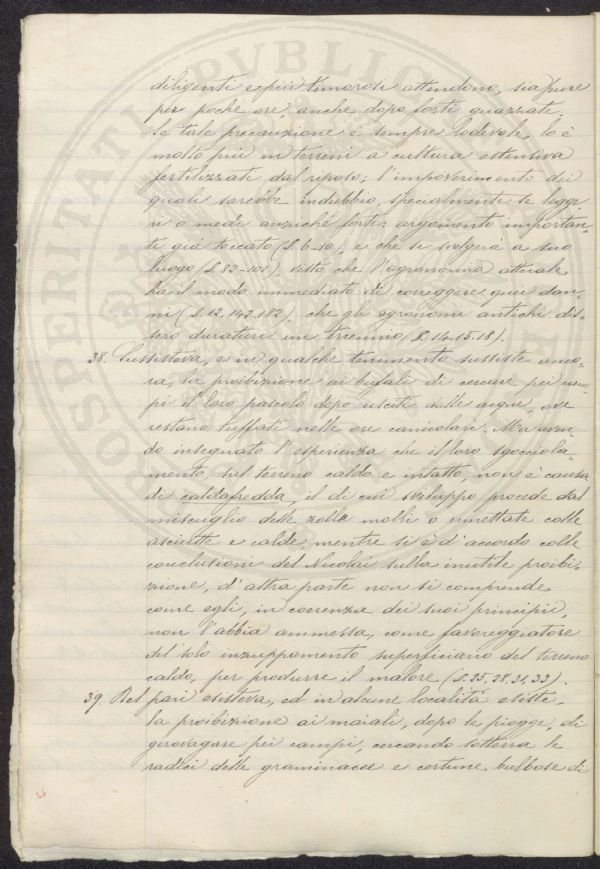 diligenti e più timorosi attendono, sia pure
per poche ore anche dopo forti guazzate.
Se tale precauzione è sempre lodevole, lo è
molto più in terreni a cultura estensiva
fertilizzati dal riposo; l'impoverimento dei
quali sarebbe indubbio, specialmente se legge-
ri o medi anziché forti: argomento importan-
te già toccato (§.6-10), e che si svolgerà a suo
luogo (§.82-101), visto che l'agronomia attuale
ha il modo immediato di correggere quei dan-
ni (§.12.142-182), che gli agronomi antichi dis-
sero duraturi un triennio (§.14.15.18).
38. Sussisteva, e in qualche tenimento sussiste anco-
ra, la proibizione ai bufali di cercare pei cam-
pi il loro pascolo dopo usciti dalle acque, ove
restano tuffati nelle ore canicolari. Ma aven-
do insegnato l'esperienza che il loro sgocciola-
mento, sul terreno caldo e intatto, non è causa
di caldafredda, il di cui sviluppo procede dal
miscuglio delle zolle molli o umettate colle
asciutte e calde, mentre si è d'accordo colle
conclusioni del Nicolai sulla inutile proibi-
zione, d'altra parte non si comprende
come egli, in coerenza dei suoi principii,
non l'abbia ammessa, come favoreggiatore
del solo inzuppamento superficiario del terreno
caldo, per produrre il malore (§.25.28.31.33).
39. Del pari esisteva, ed in alcune località esiste,
la proibizione ai maiali, dopo le piogge, di
girovagare pei campi, cercando sotterra le
radici delle graminacee e certune bulbose di
26
PROSPERITATI PVBLICAE